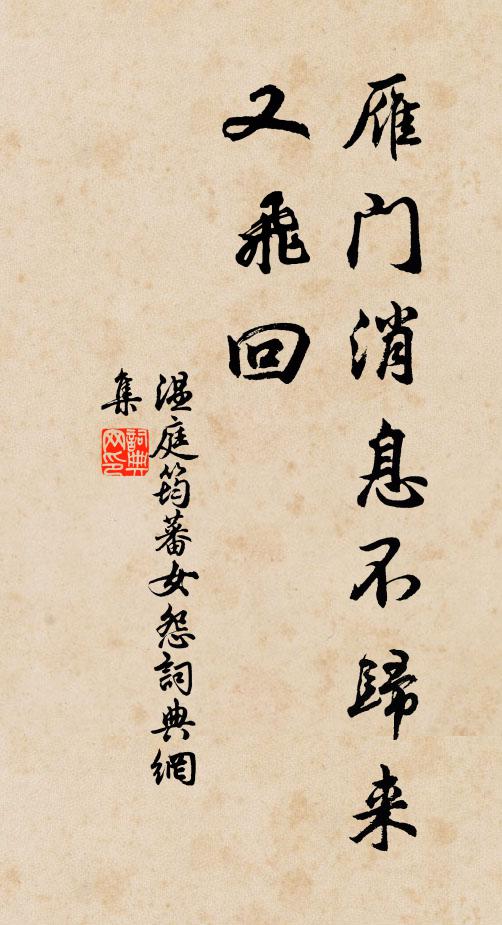 雁门消息不歸来
又飛回
温庭筠蕃女怨詞典網
集
詞典网印